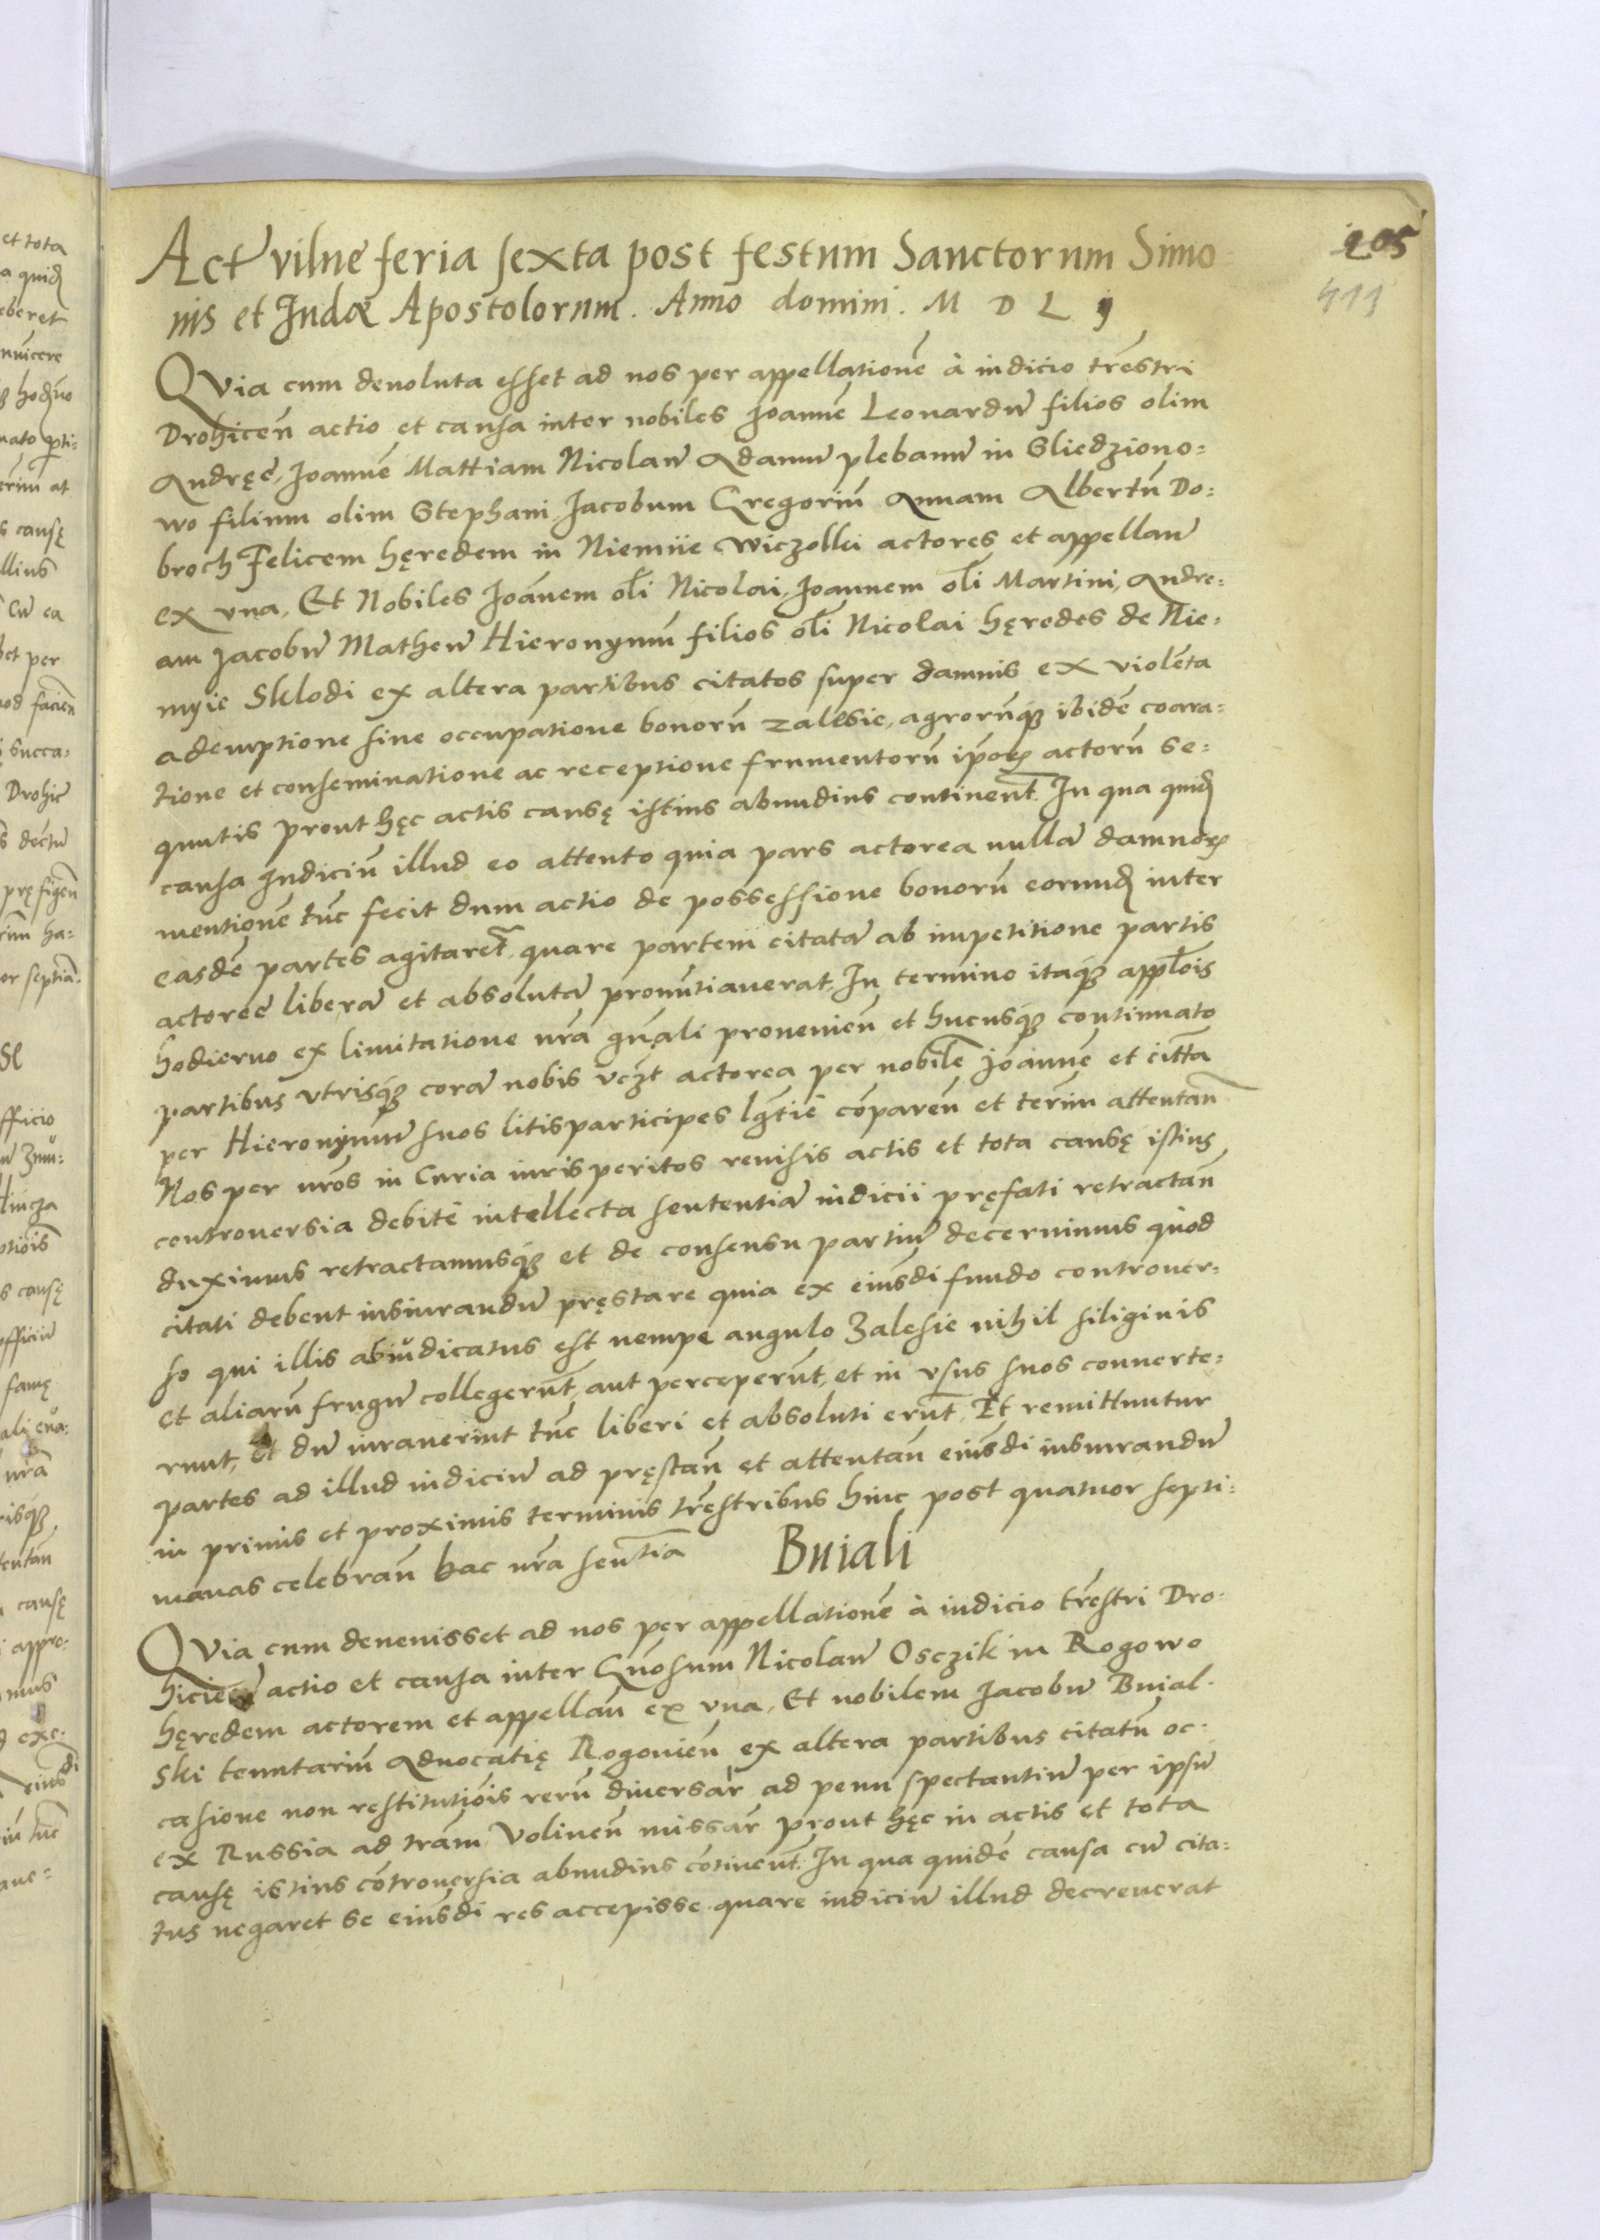 Actū vilnę feria sexta post festum Sanctorum Simo
nis et Iudæ Apostolorum. Anno domini. M D L ij
205
411
Quia cum devoluta esset ad nos per appellationē à iudicio trēstri
Drohicen̄ actio et causa inter nobiles Joannē Leonardū filios olim
Andręę, Joannē Mattiam Nicolaū Adamū plebanū in Sliedziono:
wo filium olim Stephani Jacobum Gregoriū Annam Albertū Do:
broch Felicem hęredem in Niemiie wiczolki actores et appellan̄
ex vna, Et Nobiles Joānem olī Nicolai, Joannem olī Martini, Andre:
am Jacobū Matheū Hieronymū filios olī Nicolai hęredes de Nie:
myie Sklodi ex altera partibus citatos super damnis ex violēta
ademptione sive occupatione bonorū zalesie, agrorūq3 ibidē coara:
tione et conseminatione ac receptione frumentorū ip̄oꝝ actorū se:
quutis prout hęc actis causę istius abundius continent̄. In qua quid̄
causa Iudiciū illud eo attento quia pars actorea nullā damnoꝝ
mentionē tūc fecit dum actio de possessione bonorū eorund̄ inter
easdē partes agitaret̄, quare partem citatā ab impetitione partis
actoreę liberā et absolutā pronūtiaverat, In termino itaq3 appl̄ois
hodierno ex limitatione n̄rā gn̄ali provenien̄ et hucusq3 continuato
partibus vtrisq3 corā nobis vcz̄t actorea per nobilē Joānnē et citt̄a
per Hieronymū suos litisparticipes lḡtiē cōparen̄ et term̄ attentan̄
Nos per n̄ros in Curia iurisperitos revisis actis et tota causę istius
controversia debitē intellecta sententiā iudicii pręfati retractan̄
duximus retractamusq3 et de consensu partiū decernimus quòd
citati debent iusiurandū pręstare quia ex eiusdī fundo controver:
so qui illis abiudicatus est nempe angulo Zalesie nihil siliginis
et aliarū frugū collegerūt, aut perceperūt, et in vsus suos converte:
runt, Et dū iuraverint tūc liberi et absoluti erūt. Et remittuntur
partes ad illud iudiciū ad pręstan̄ et attentan̄ eiusdī iusiurandū
in primis et proximis terminis trēstribus hinc post quatuor septi:
manas celebran̄ hac n̄ra sentīa
Buiali
Quia cum devenisset ad nos per appellationē à iudicio trēstri Dro:
hicien̄ actio et causa inter Gn̄osum Nicolaū Osczik in Rogowo
hęredem actorem et appellan̄ ex vna, Et nobilem Jacobū Buial:
ski tenutariū Advocatię Rogovien̄ ex altera partibus citatū oc:
casione non restitutiōis rerū diversar̄ ad penu spectantiū per ipsū
ex Russia ad trām Volinen̄ missar̄ prout hęc in actis et tota
causę istius cōtroversia abundius cōtinent̄. In qua quidē causa cū cita:
tus negaret se eiusdī res accepisse quare iudiciū illud decreverat